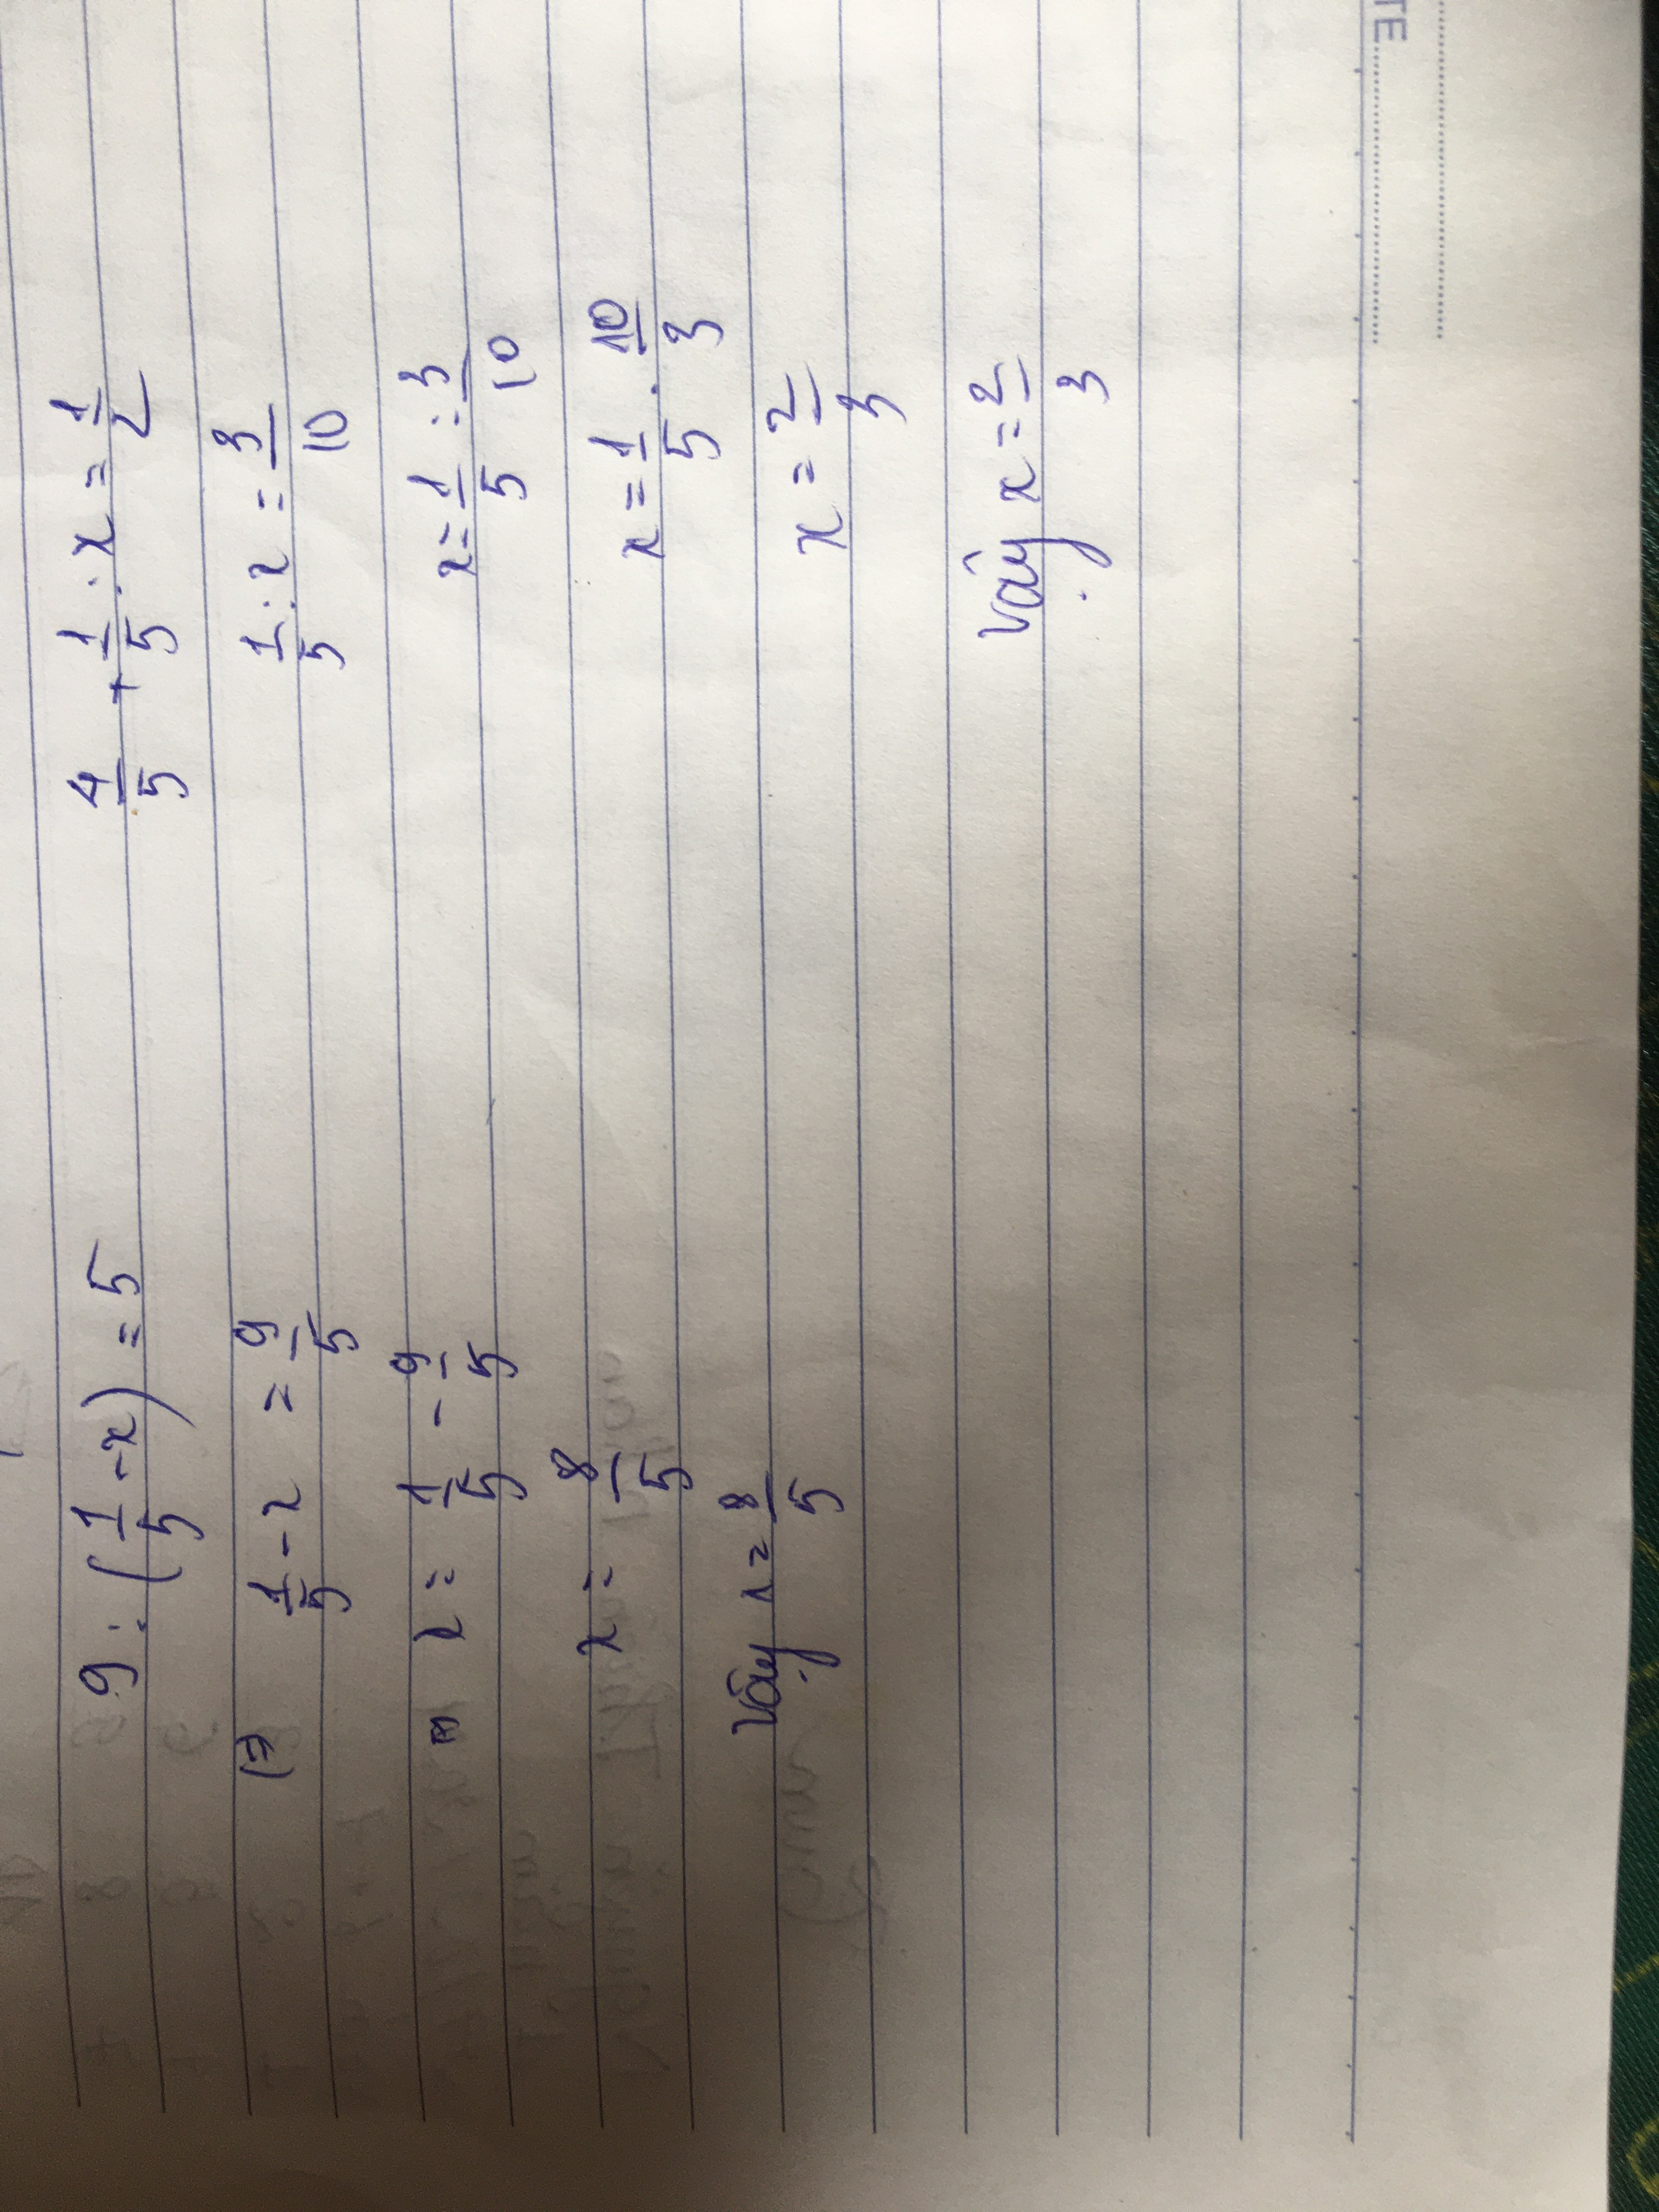 9 : (1/5 - x) = 5
1/5 - x = 9/5
x = 1/5 - 9/5
x = 8/5
Vậy x = 8/5
4/5 + 1/5 : x = 1/2
1/5 : x = 3/10
x = 1/5 : 3/10
x = 1/5 . 10/3
x = 2/3
Vậy x = 2/3
TE